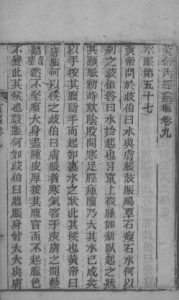 黃帝內經靈樞卷九
水脹第五十七
黃帝問於岐伯曰水與膚脹鼓脹腸覃石瘕石水何以
別之岐伯答曰水始起也目窠上微腫如新臥起之狀
其頸脈動時欬陰股間寒足脛腫腹乃大其水已成矣
以手按其腹隨手而起如裹水之狀此其候也黃帝曰
膚脹何以候之岐伯曰膚脹者寒氣客于皮膚之間
然不堅腹大身盡腫皮厚按其腹窅而不起腹色
不變此其候也鼓脹何如岐伯曰腹脹身皆大大與膚